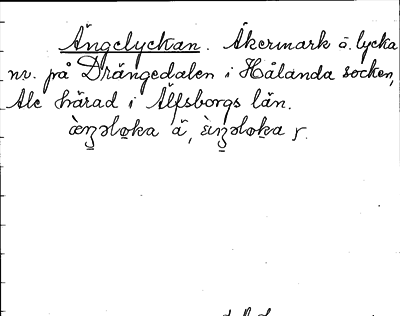 Ängelyckan. Åkermark o. lycka
nv. på Drängedalen i Hålanda socken,
Ale härad i Älfsborgs län.